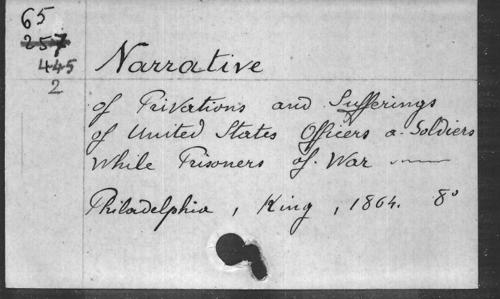 65
257
445
2
Narrative
of Privations and Sufferings
of United States Officers a. Soldiers
while Prisoners of. War
Philadelphia, King, 1864. 8°